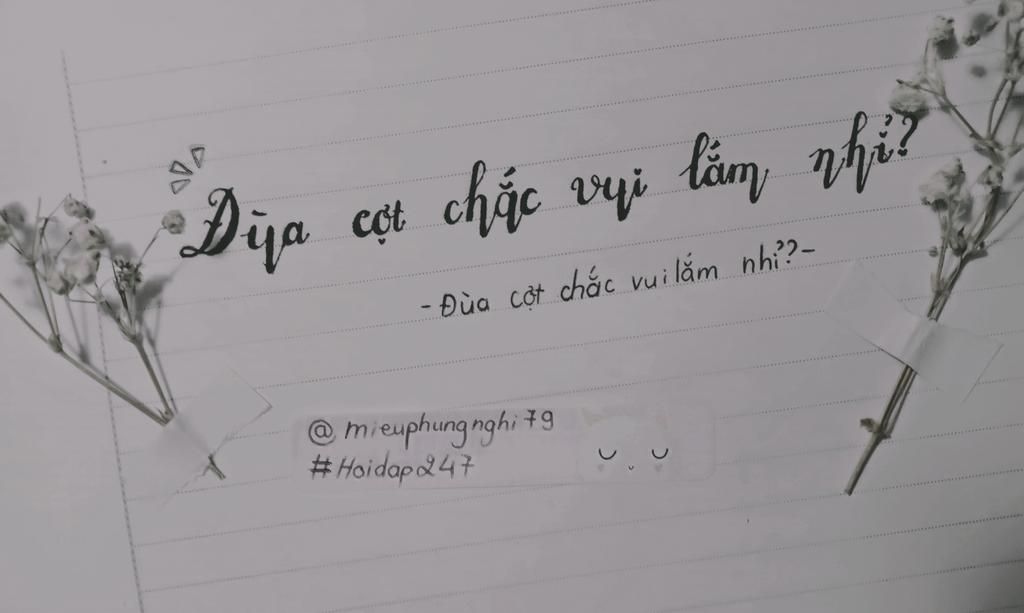 Đùa cợt chắc vui lắm nhỉ?
-Đùa cợt chắc vui lắm nhỉ??-
@mieuphungnghi79
#Hoidap247